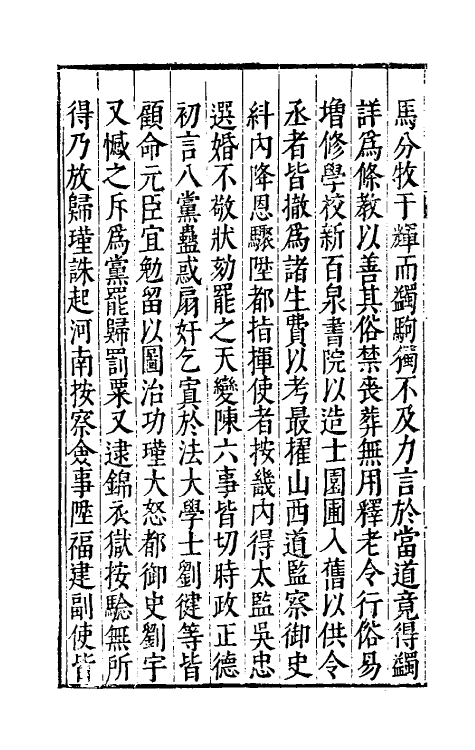 馬分牧于輝而蠲駒獨不及力言於當道竟得蠲
詳爲條教以善其俗禁喪葬無用釋老令行俗易
増修學校新百泉書院以造士園圃入舊以供令
丞者皆撤爲諸生費以考最擢山西道監察御史
糾內降恩驟陞都指揮使者按畿內得太監吳忠
選婚不敬狀劾罷之天變陳六事皆切時政正德
初言八黨蠱惑扇奸乞寘於法大學士劉健等皆
顧命元臣宜勉留以圖治功瑾大怒都御史劉宇
又憾之斥爲黨罷歸罰粟又逮錦衣獄按驗無所
得乃放歸瑾誅起河南按察僉事陞福建副使皆